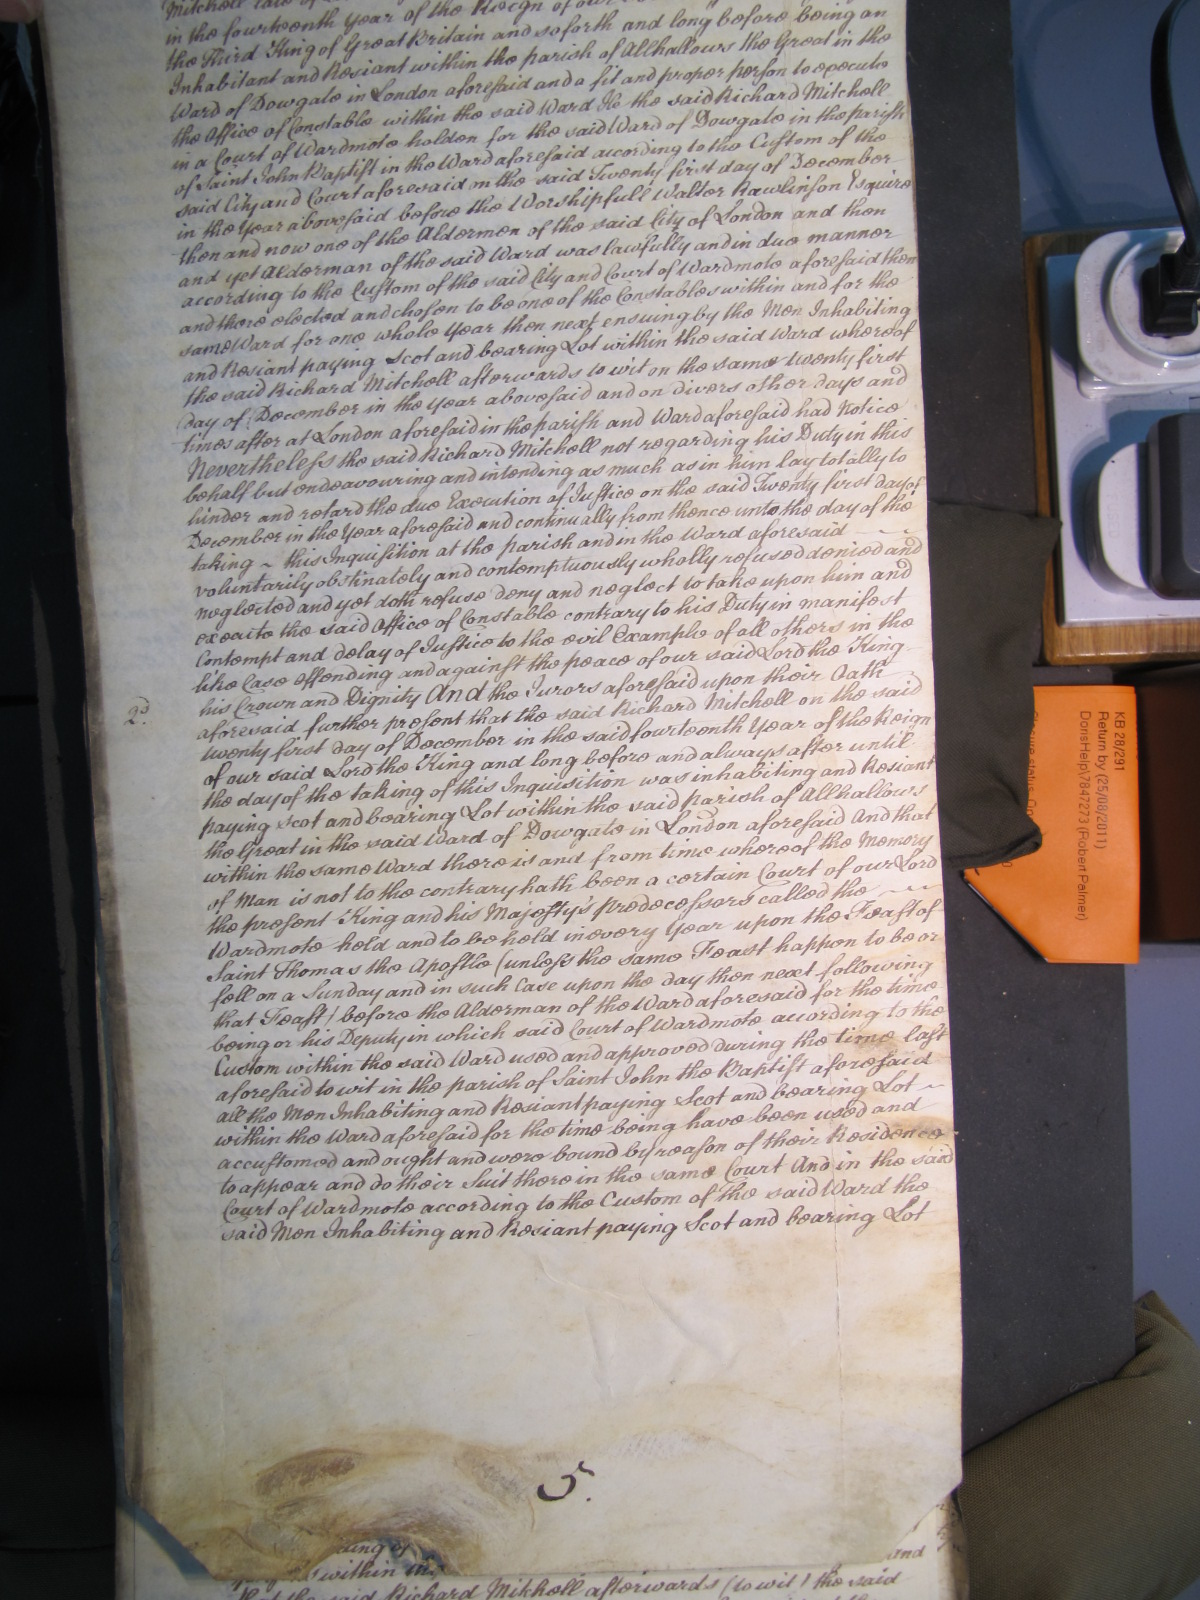 Mitchell late of
in the fourteenth year of the Reign of our
the Third King of Great Britain and soforth and long before being an
Inhabitant and Resiant within the parish of Allhallows the Great in the
Ward of Dowgate in London aforesaid and a fit and proper person to execute
the Office of Constable within the said Ward He the said Richard Mitchell
in a Court of Wardmote holden for the said Ward of Dowgate in the parish
of Saint John Baptist in the Ward aforesaid according to the Custom of the
said City and Court aforesaid on the said Twenty first day of December
in the Year abovesaid before the Worshipfull Walter Rawlinson Esquire
then and now one of the Aldermen of the said City of London and then
and yet Alderman of the said Ward was lawfully and in due manner
according to the Custom of the said City and Court of Wardmote aforesaid then
and there elected and chosen to be one of the Constables within and for the
same Ward for one whole Year then next ensuing by the Men Inhabiting
and Resiant paying Scot and bearing Lot within the said Ward whereof
the said Richard Mitchell afterwards to wit on the same twenty first
day of December in the Year abovesaid and on divers other days and
times after at London aforesaid in the parish and Ward aforesaid had Notice
Nevertheless the said Richard Mitchell not regarding his Duty in this
behalf but endeavouring and intending as much as in him lay totally to
hinder and retard the due Execution of Justice on the said Twenty first day of
December in the Year aforesaid and continually from thence unto the day of the
taking ~ this Inquisition at the parish and in the Ward aforesaid
voluntarily obstinately and contemptuously wholly refused denied and
neglected and yet doth refuse deny and neglect to take upon him and
execute the said Office of Constable contrary to his Duty in manifest
Contempt and delay of Justice to the evil Example of all others in the
like Case offending and against the peace of our said Lord the King
his Crown and Dignity And the Jurors aforesaid upon their Oath
2d.
aforesaid further present that the said Richard Mitchell on the said
twenty first day of December in the said fourteenth Year of the Reign
of our said Lord the King and long before and always after until
the day of the taking of this Inquisition was inhabiting and Resiant
paying Scot and bearing Lot within the said parish of Allhallows
the Great in the said Ward of Dowgate in London aforesaid And that
within the same Ward there is and from time whereof the Memory
of Man is not to the contrary hath been a certain Court of our Lord
the present King and his Majesty's predecessors called the
Wardmote held and to be held in every Year upon the Feast of
Saint Thomas the Apostle (unless the same Feast happen to be or
fall on a Sunday and in such Case upon the day then next following
that Feast) before the Alderman of the Ward aforesaid for the time
being or his Deputy in which said Court of Wardmote according to the
Custom within the said Ward used and approved during the time last
aforesaid to wit in the parish of Saint John the Baptist aforesaid
all the Men Inhabiting and Resiant paying Scot and bearing Lot ~
within the Ward aforesaid for the time being have been used and
accustomed and ought and were bound by reason of their Residence
to appear and do their Suit there in the same Court And in the said
Court of Wardmote according to the Custom of the said Ward the
said Men Inhabiting and Resiant paying Scot and bearing Lot
5.
within the
and
that the said Richard Mitchell afterwards (to wit) the said
KB 28/291
Return by (25/08/2011)
DorisHelp\7847273 (Robert Palmer)